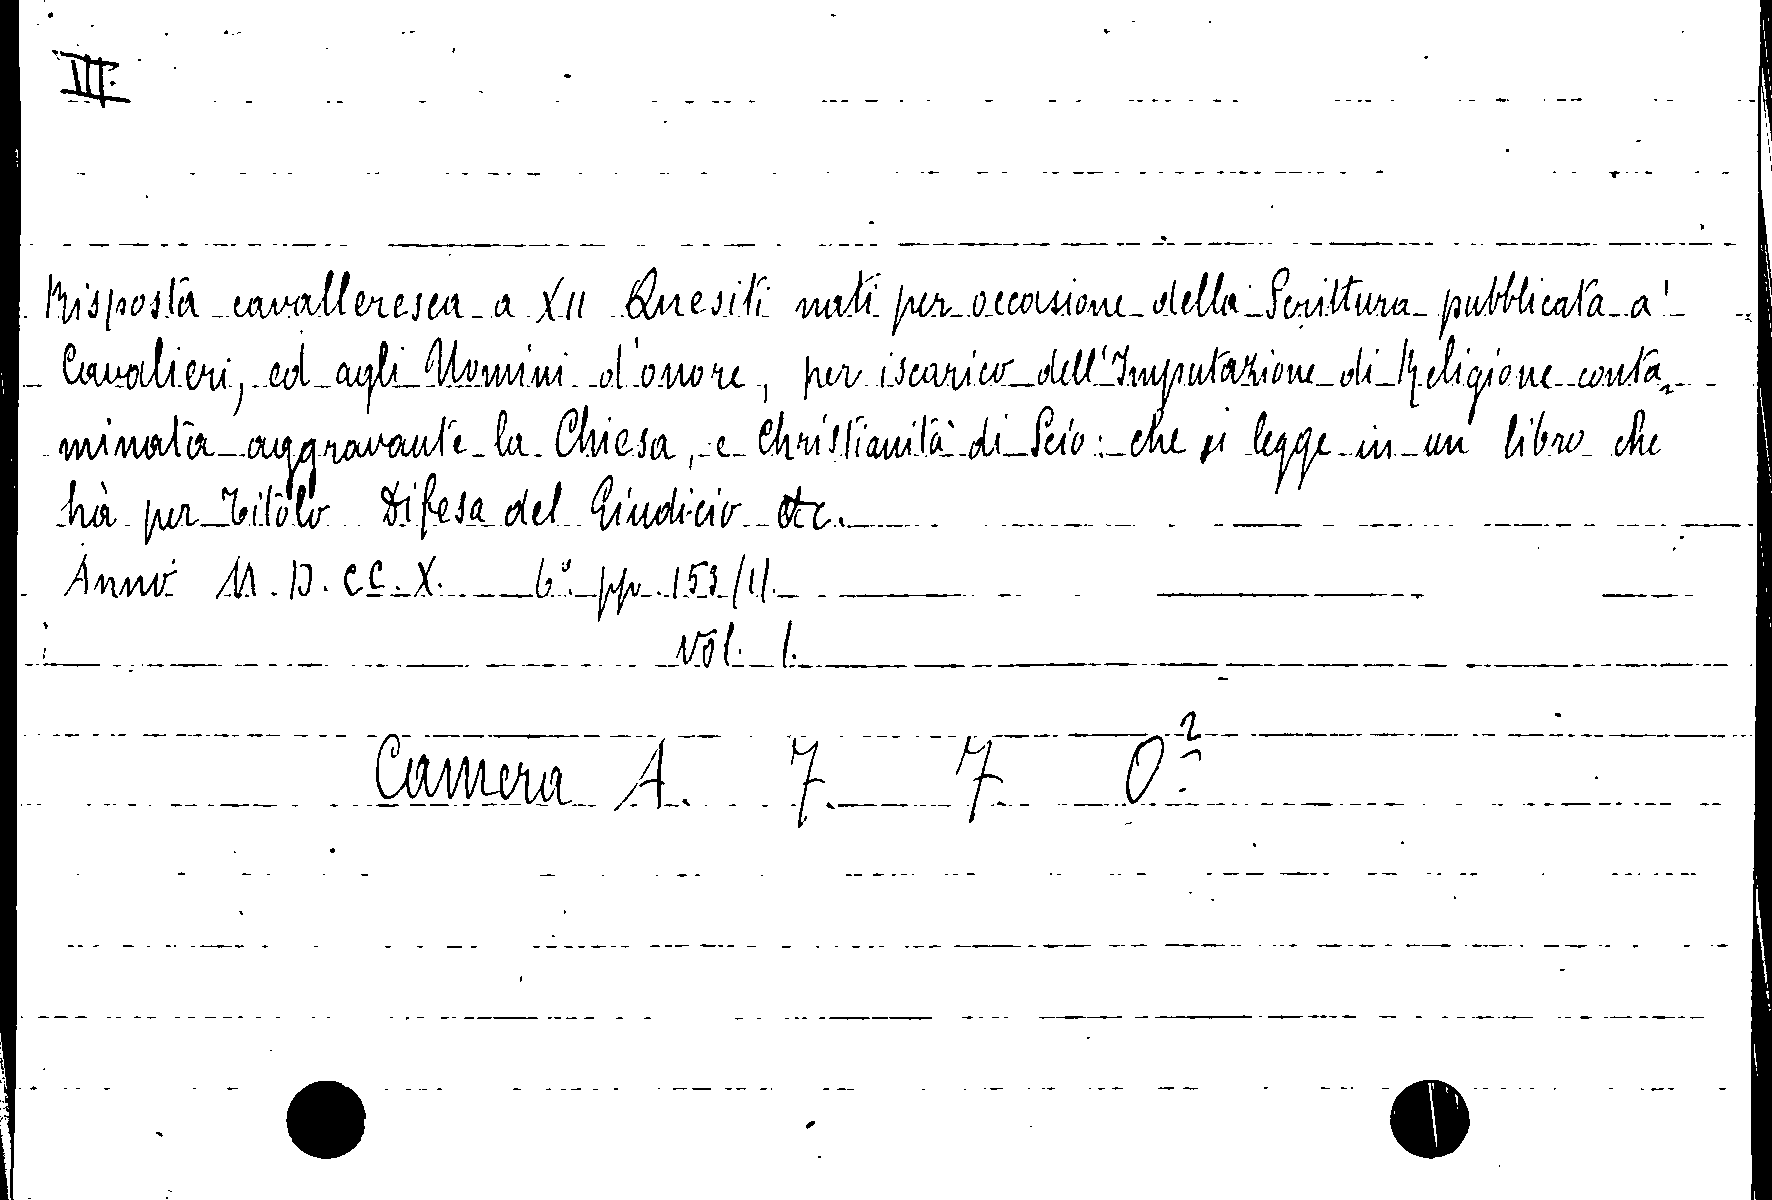 III.
Risposta cavalleresca a XII Quesiti nati per occasione della Scrittura pubblicata a'
Cavalieri, ed agli Uomini d'onore, per iscarico dell'Imputazione di Religione conta=
minata aggravante la Chiesa, e Christianità di Scio: che si legge in un libro che
hà per Titolo Difesa del Giudicio etc.
Anno M.D.CC.X. 6° pp. 153/1/.
Vol. 1.
Camera A. 7. 7. O².